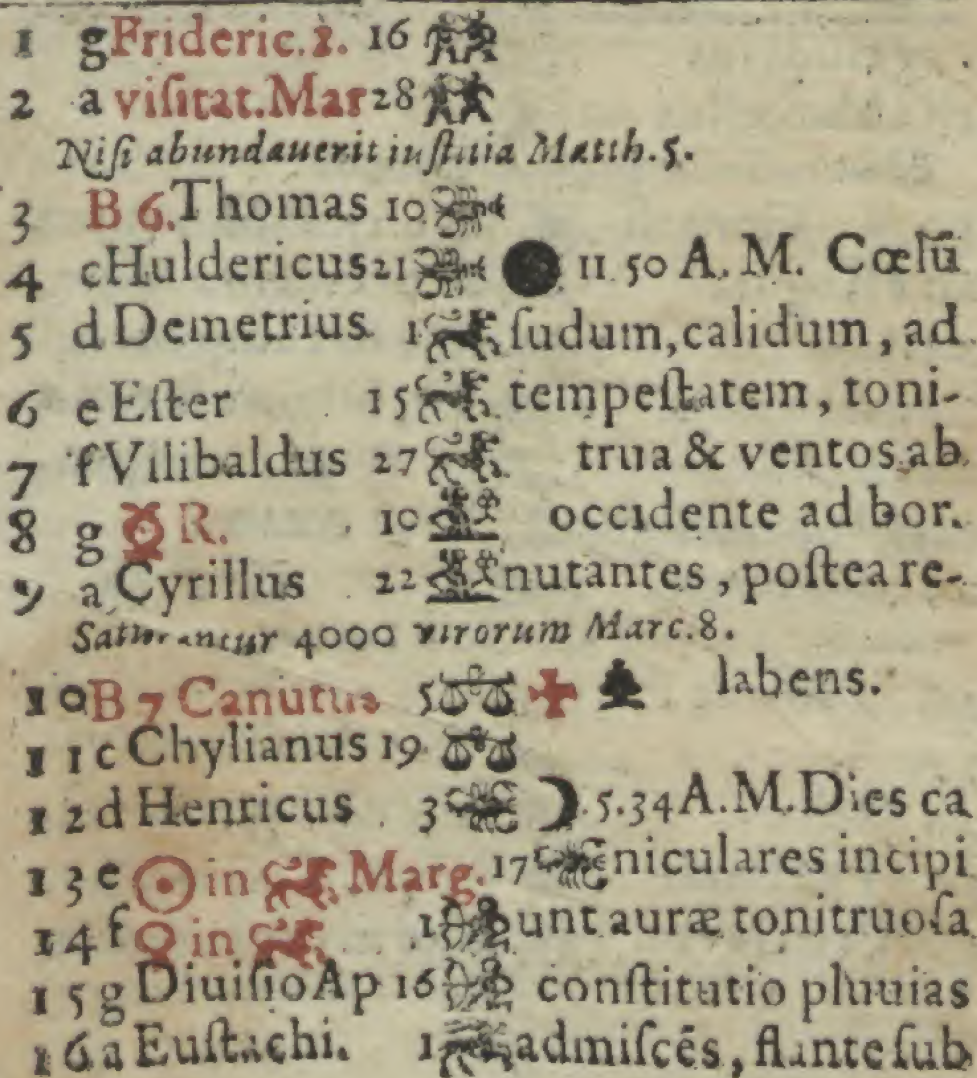 1 g Frideric. 2. 16
2 a viſitat. Mar 28
Niſi abundauerit iuſtitia Matth. 5.
3 B 6. Thomas 10
4 c Huldericus 21 11. 50 A. M. Cœlū
5 d Demetrius 1 ſudum, calidum, ad
6 e Eſter 15 tempeſtatem, toni-
7 f Vilibaldus 27 trua & ventos ab
8 g ☿ R. 10 occidente ad bor.
9 a Cyrillus 22 nutantes, poſtea re-
Saturantur 4000 virorum Marc. 8.
10 B 7 Canutus 5 labens.
11 c Chylianus 19
12 d Henricus 3 ☽. 5. 34 A. M. Dies ca
13 e ☉ in ♌ Marg. 17 niculares incipi
14 f ♀ in ♌ 1 unt auræ tonitruoſa
15 g Diuiſio Ap 16 conſtitutio pluuias
16 a Euſtachi. 1 admiſcēs, flante ſub